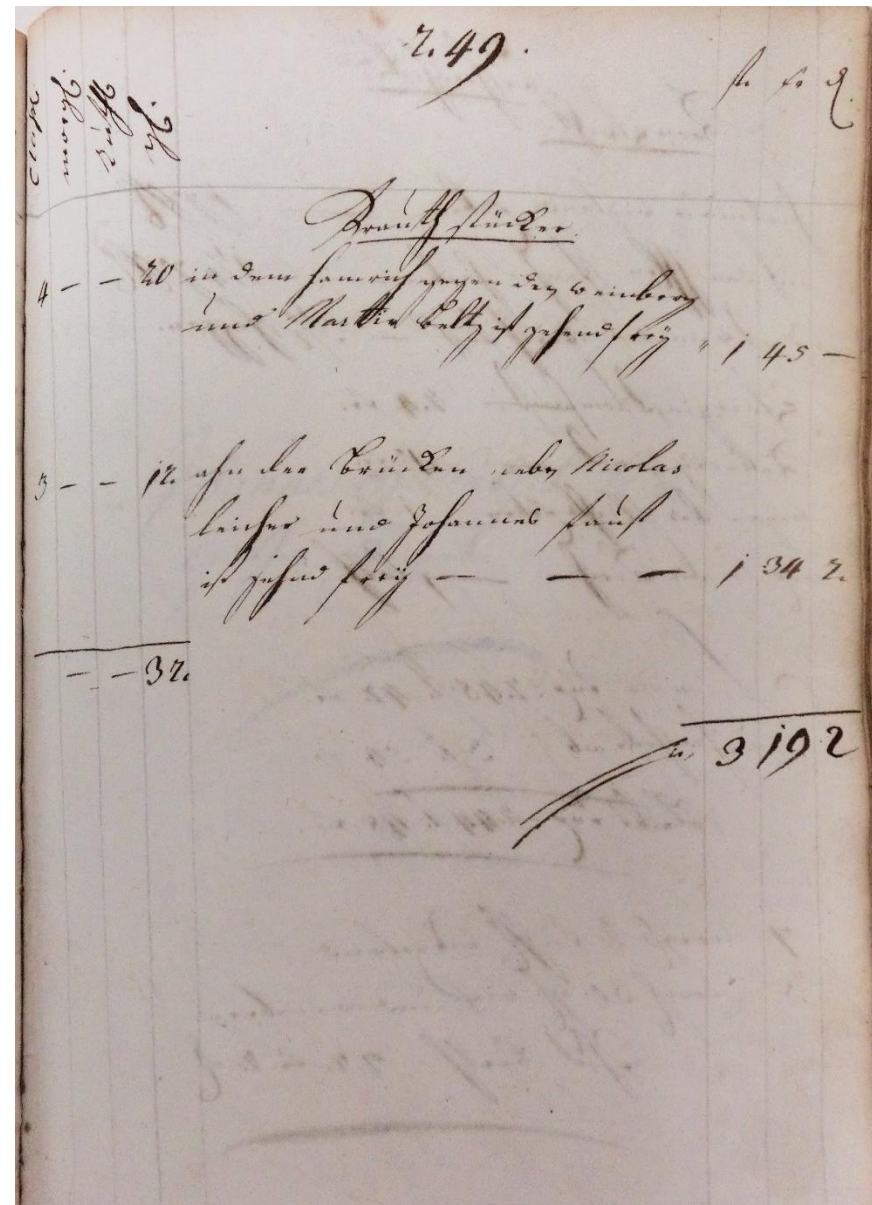 249.
fl. kr ₰.
Classe
Krauth stücker.
4 – – 20 in dem hamrich gegen den weinberg
und Martin Beltz ist zehend freÿ " 1 45 –
3 – – 12. ahn der Brücken neben Nicolas
leicher und Johannes faust
ist zehnd freÿ – – – 1 34 2.
– – 32.
3 19 2